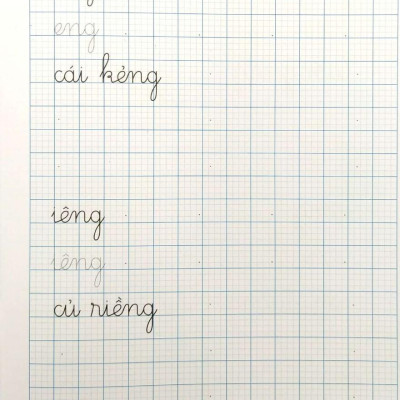 eng
cái kẻng
iêng
iêng
củ riềng